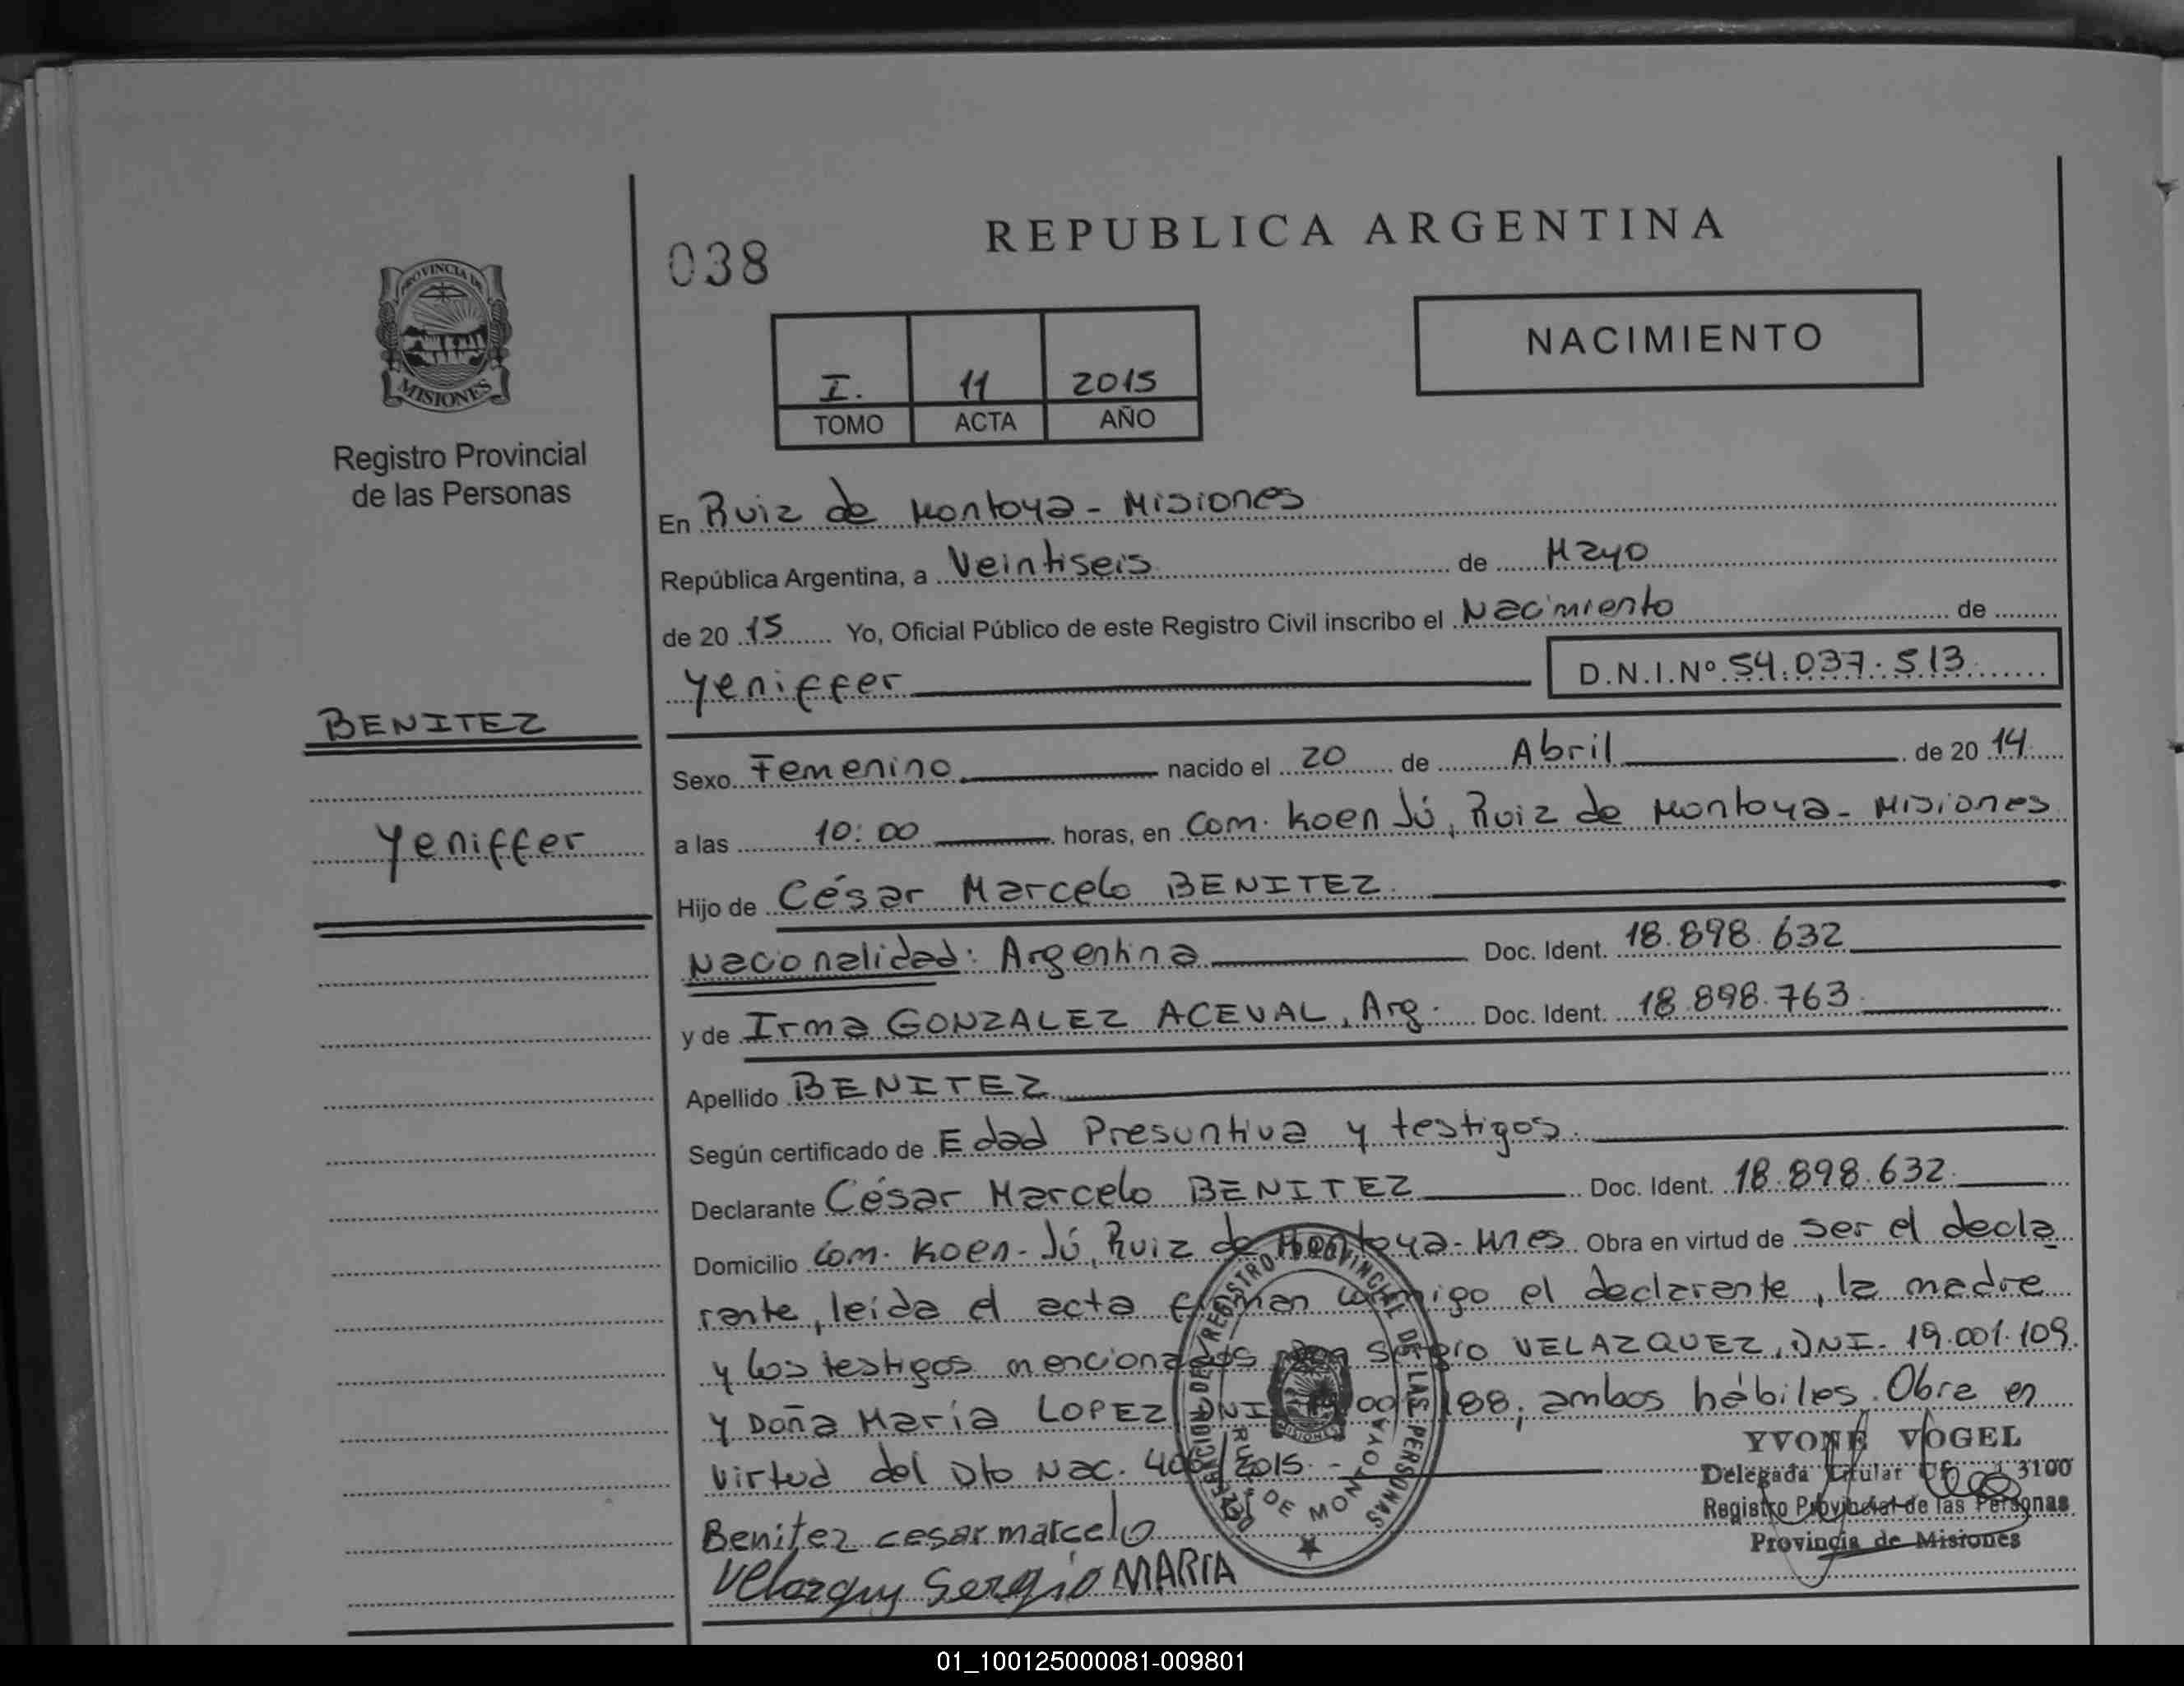 REPUBLICA ARGENTINA
038
NACIMIENTO
PROVINCIA DE
MISIONES
I. 11 2015
TOMO ACTA AÑO
Registro Provincial
de las Personas
En Ruiz de Montoya - Misiones
República Argentina, a Veintiseis de Mayo
de 20 15 Yo, Oficial Público de este Registro Civil inscribo el Nacimiento de
Yeniffer D.N.I.Nº 54.037.513
BENITEZ
Sexo Femenino nacido el 20 de Abril de 20 14
Yeniffer
a las 10:00 horas, en Com. Koen Jú, Ruiz de Montoya - Misiones
Hijo de César Marcelo BENITEZ.
Nacionalidad: Argentina Doc. Ident. 18.898.632
y de Irma GONZALEZ ACEVAL, Arg. Doc. Ident. 18.898.763.
Apellido BENITEZ
Según certificado de Edad Presuntiva y testigos.
Declarante César Marcelo BENITEZ Doc. Ident. 18.898.632.
Domicilio Com. Koen-Jú, Ruiz de Montoya - Mnes Obra en virtud de ser el decla
rante, leída el acta firman conmigo el declarante, la madre
y los testigos mencionados Don Sergio VELAZQUEZ, DNI. 19.001.109.
y Doña María LOPEZ DNI 188, ambos hábiles. Obra en
virtud del Dto Nac. 406/2015.-
DELEGACION DEL REGISTRO PROVINCIAL DE LAS PERSONAS
RUIZ DE MONTOYA
MISIONES
YVONE VOGEL
Delegada Titular 3100
Registro Provincial de las Personas
Provincia de Misiones
Benitez cesar marcelo
Velazquez Sergio MARIA
01_100125000081-009801